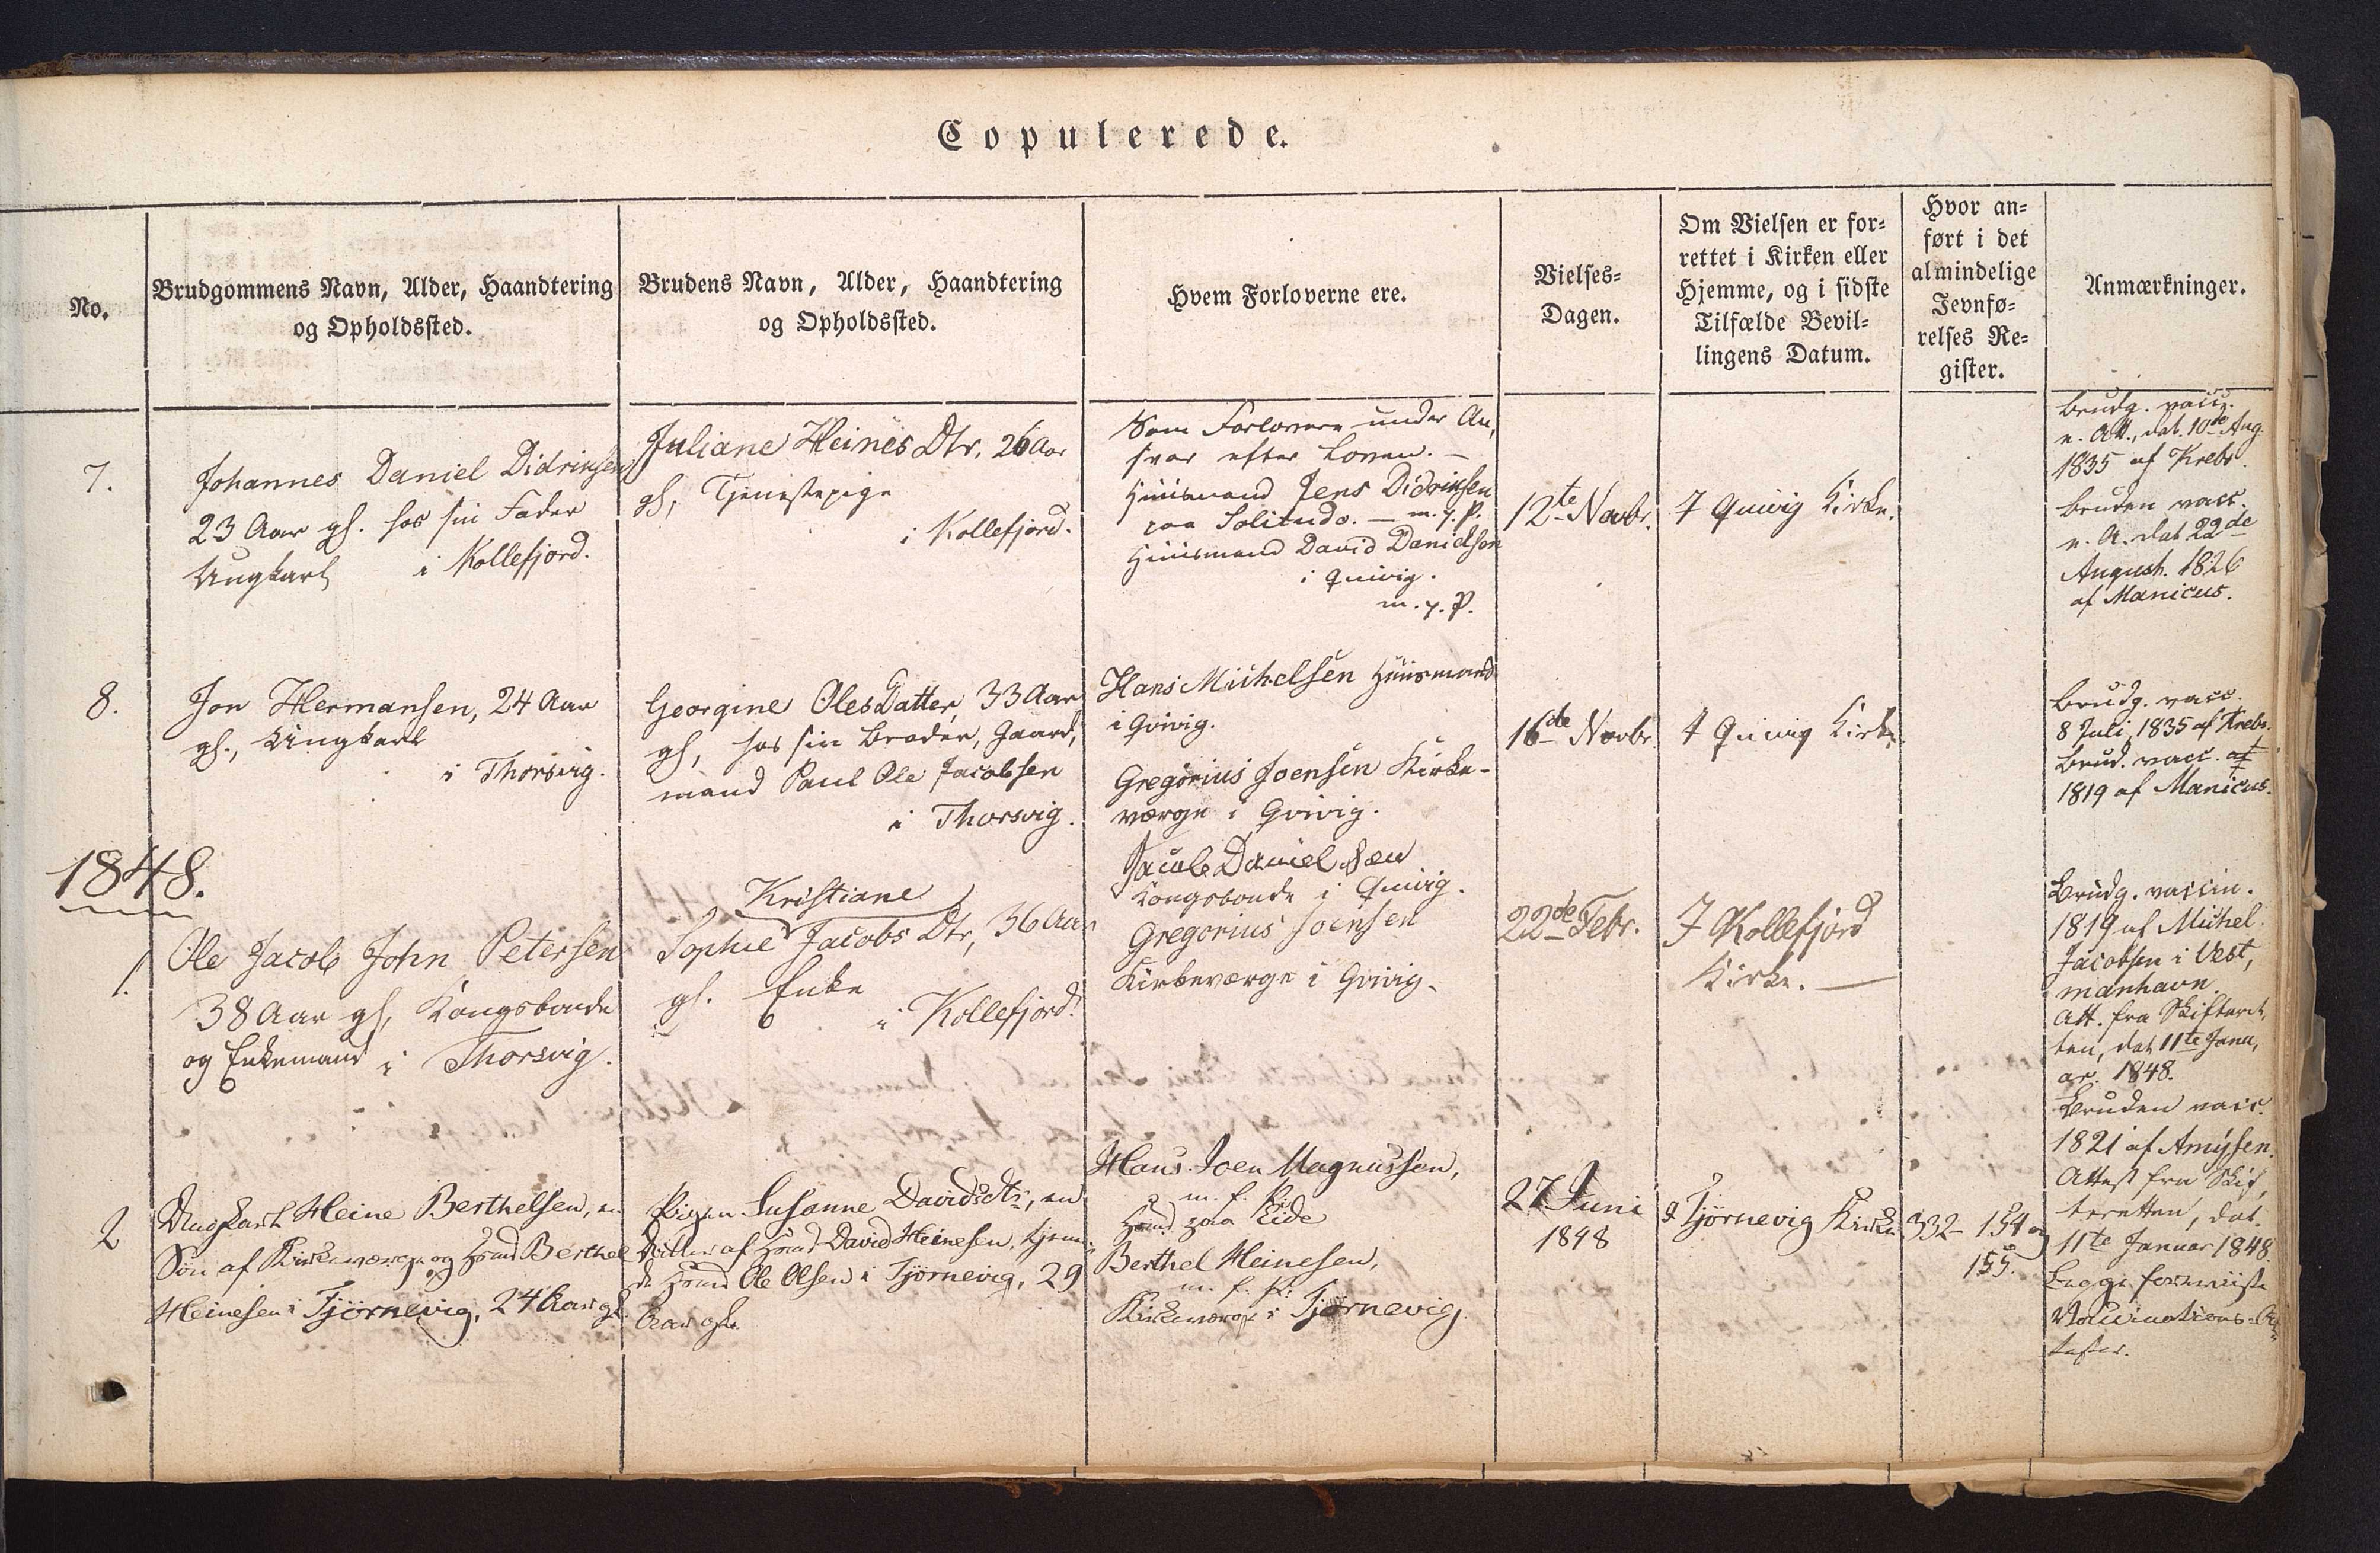 Copulerede.
No.
Brudgommens Navn, Alder, Haandtering
og Opholdssted.
Brudens Navn, Alder, Haandtering
og Opholdssted.
Hvem Forloverne ere.
Vielses-
Dagen.
Om Vielsen er for-
rettet i Kirken eller
Hjemme, og i sidste
Tilfælde Bevil-
lingens Datum.
Hvor an-
ført i det
almindelige
Jevnfø-
relses Re-
gister.
Anmærkninger.
7.
Johannes Daniel Didriksen
23 Aar gl. hos sin Fader
Ungkarl i Kollefjord.
Juliane Heines Dtr, 26 Aar
gl, Tjenestepige
i Kollefjord.
Som Forlovere under An,
svar efter Loven. –
Huusmand Jens Didriksen
paa Solitude. – m. p. P.
Huusmand David Danielsen
i Quivig.
m. p. P.
12te Novbr.
I Quivig Kirke.
Brudg. vacc.
e. Att., dat. 10de Aug.
1835 af Krebs.
Bruden vacc.
e. A. dat 22de
August. 1826
af Manicus.
8.
Jon Hermansen, 24 Aar
gl., Ungkarl
i Thorsvig.
Georgine OlesDatter, 33 Aar
gl, hos sin Broder, Gaard,
mand Paul Ole Jacobsen
i Thorsvig.
Hans Michelsen Huusmand
i Qvivig.
Gregorius Joensen Kirke-
værge i Qvivig.
16de Novbr.
I Quivig Kirke.
Brudg. vacc.
8 Juli 1835 af Krebs.
Brud. vacc. af
1819 af Manicus.
1848.
1.
Ole Jacob John Petersen
38 Aar gl, Kongsbonde
og Enkemand i Thorsvig.
Kristiane
Sophie Jacobs Dtr, 36 Aar
gl. Enke
i Kollefjord.
Jacob Danielsen
Kongsbonde i Quivig.
Gregorius Joensen
Kirkeværge i Qvivig.
22de Febr.
I Kollefjord
Kirke. –
Brudg. vaccin.
1819 af Michel
Jacobsen i Vest,
manhavn.
Att. fra Skifteret,
ten, dat 11te Janu,
ar. 1848.
Bruden vacc.
1821 af Arnysen.
Attest fra Skif,
teretten, dat.
11te Januar 1848.
2
Ungkarl Heine Berthelsen, en
Søn af Kirkeværge og Hmd Berthel
Heinesen i Tjörnevig, 24 Aar gl.
Pigen Susanne Davidsdtr, en
Datter af Hmd David Heinesen, tjenen-
de Hmd Ole Olsen i Tjörnevig, 29
Aar gl.
Hans Joen Magnussen,
m. f. P.
Hmd paa Eide
Berthel Heinesen,
m. f. P.
Kirkeværge i Tjørnevig.
27 Juni
1848
I Tjørnevig Kirke
332 – 154 og
155.
Begge foreviiste
Vaccinations-At-
tester.